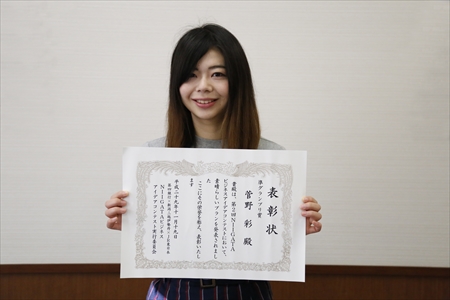 表彰状
準グランプリ賞
菅野 彩 殿
貴殿は、第2回NIIGATA
ビジネスアイデアコンテストにおいて、
素晴らしいプランを発表されまし
た
ここにその栄誉を称え、表彰いたし
ます
平成二十九年十一月十九日
NIIGATAビジネス
アイデアコンテスト実行委員会